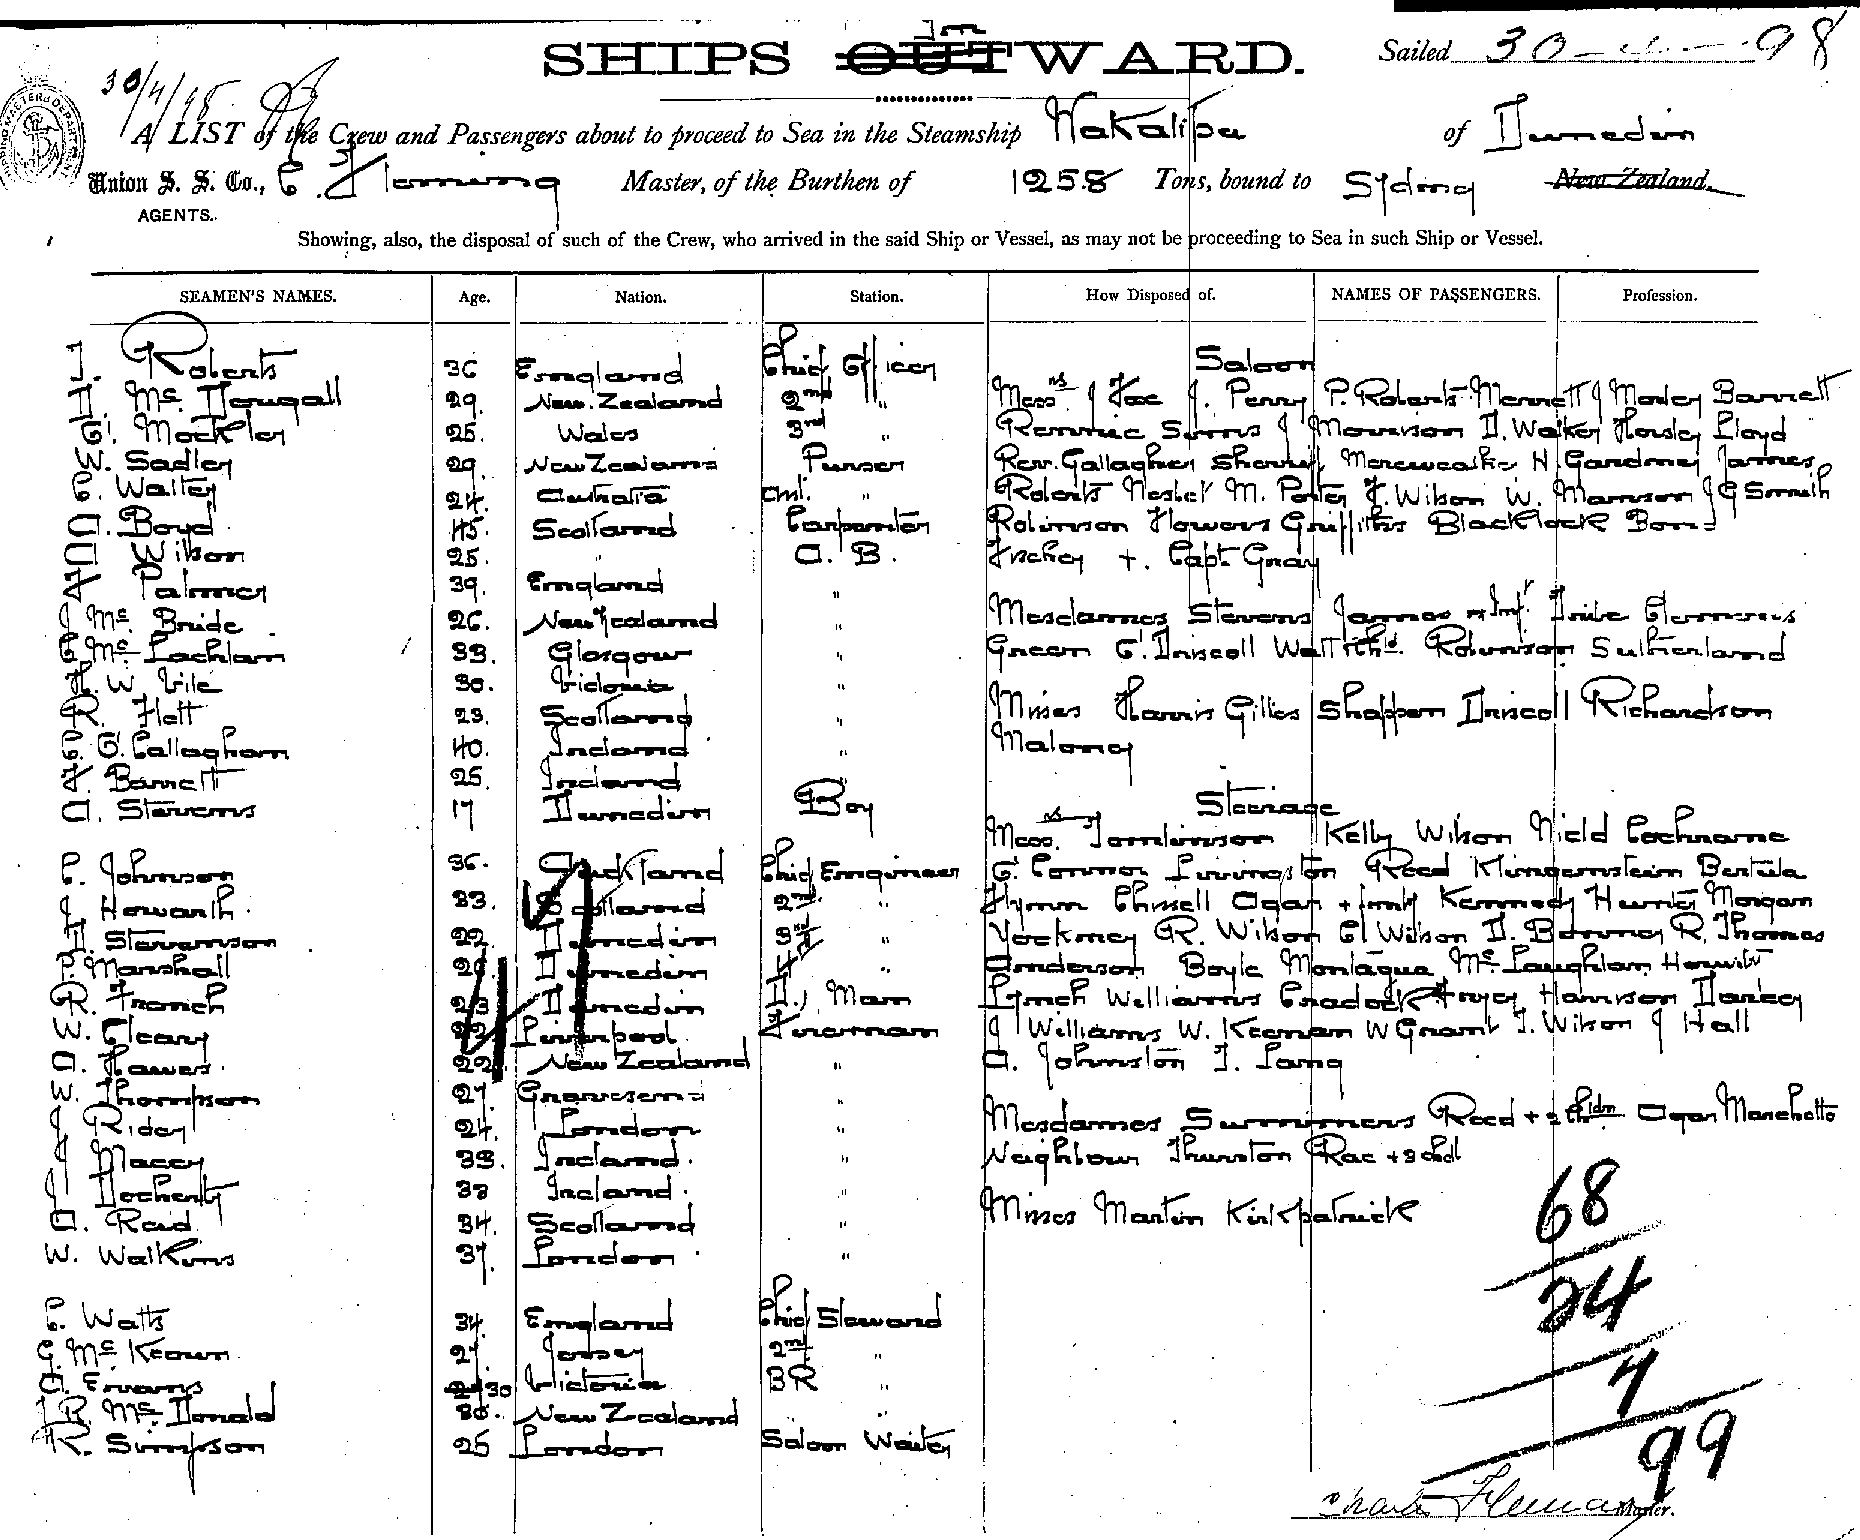 SHIPS OUTWARD. In
Sailed 30 98
30/4/98
A LIST of the Crew and Passengers about to proceed to Sea in the Steamship Wakatipu of Dunedin
Union S. S. Co., C. Fleming Master, of the Burthen of 1258 Tons, bound to Sydney New Zealand.
AGENTS.
Showing, also, the disposal of such of the Crew, who arrived in the said Ship or Vessel, as may not be proceeding to Sea in such Ship or Vessel.
SEAMEN'S NAMES. Age. Nation. Station. How Disposed of. NAMES OF PASSENGERS. Profession.
J. Roberts 36 England Chief Officer Saloon
D. Mc. Dougall 29. New. Zealand 2nd " Messrs J Fox J. Perry P. Roberts Merrett J Morley Barrett
E. Mockler 25. Wales 3rd " Rennie Simms J Morrison D. Walker Horsley Lloyd
W. Sadler 29. New Zealand Purser Rev. Gallagher Sherriff Mereweather H Gardiner James
C. Walter 24. Australia Asst. " Roberts Nesbet M. Porter F. Wilson W. Manson J G Smith
A. Boyd 45. Scotland Carpenter Robinson Howers Griffiths Blacklock Bon=
A Wilson 25. " A. B. + Capt Gray
F Palmer 39. England "
J Mc Bride 26. New Zealand " Mesdammes Stevens James + Inf. Clemens
C Mc Lachlan 33. Glasgow " Green E. Driscoll Robinson Sutherland
H. W Vile 30. Victoria "
R. Flett 23. Scotland " Misses Harris Gillies Shappen Driscoll Richardson
C. O. Callaghan 40. Ireland " Maloney
F Barrett 25. Ireland "
A. Stevens 17 Dunedin Boy Steerage
Messrs Tomlinson Kelly Wilson Nield Cochrane
C. Johnson 36. Auckland Chief Engineer O. Connor Livingston Reed Klingenstein
J Howarth 33. Scotland 2nd " Flynn Chissell Agar + family Kennedy Hunter Morgan
D. Stevenson 22. Dunedin 3rd " Yockney R. Wilson E Wilson D. R. Thomas
P. Marshall Dunedin 4th " Anderson Boyle Montague Mc. Laughlan
R. French 23 Dunedin D., Man Lynch Williams Cradock Fryer Harrison Darley
W. Cleary 22 Liverpool Fireman J Williams W. Keenan W Grant T. Wilson J Hall
A. Hawes. 22 New Zealand " A. Johnston T. Lang
W. Thompson 27. Gravesend "
J Riley 24. London " Mesdammes Summers Reed + 2 chldn Agar Manchetto
J Macey 33. Ireland. " Neighbour Thurston Rae + 3 chdl
J Docherty 38 Ireland. "
A. Reid 34. Scotland " Misses Martin Kirkpatrick
W. Watkins 37. London "
68
C. Watts 34. England Chief Steward 24
G. Mc Keown 27 Jersey 2nd "
A. Evans 30 Victoria BR " 7
R. Mc. Donald 30. New Zealand "
R. Simpson 25 London Saloon Waiter 99
Charles Fleming Master.